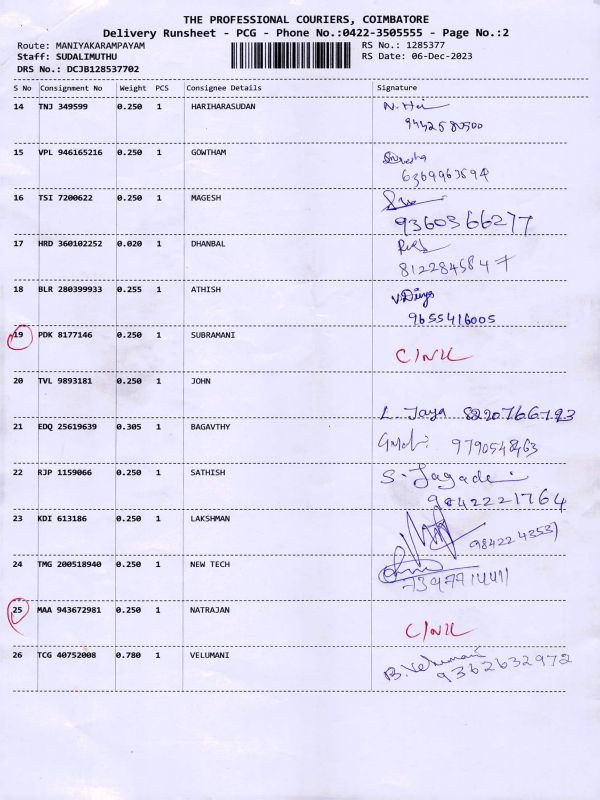 THE PROFESSIONAL COURIERS, COIMBATORE
Delivery Runsheet - PCG - Phone No.:0422-3505555 - Page No.:2
Route: MANIYAKARAMPAYAM RS No.: 1285377
Staff: SUDALIMUTHU RS Date: 06-Dec-2023
DRS No.: DCJB128537702
S No Consignment No Weight PCS Consignee Details Signature
14 TNJ 349599 0.250 1 HARIHARASUDAN
15 VPL 946165216 0.250 1 GOWTHAM
16 TSI 7200622 0.250 1 MAGESH
9360366277
17 HRD 360102252 0.020 1 DHANBAL
8122845847
18 BLR 280399933 0.255 1 ATHISH V.Divya
9655416005
19 PDK 8177146 0.250 1 SUBRAMANI
C/NR
20 TVL 9893181 0.250 1 JOHN
L. Jaya 8220766793
21 EDQ 25619639 0.305 1 BAGAVTHY
9790548463
22 RJP 1159066 0.250 1 SATHISH S. Jagade
9842221764
23 KDI 613186 0.250 1 LAKSHMAN
24 TMG 200518940 0.250 1 NEW TECH
25 MAA 943672981 0.250 1 NATRAJAN
C/NR
26 TCG 40752008 0.780 1 VELUMANI B. Velumani
9362632972